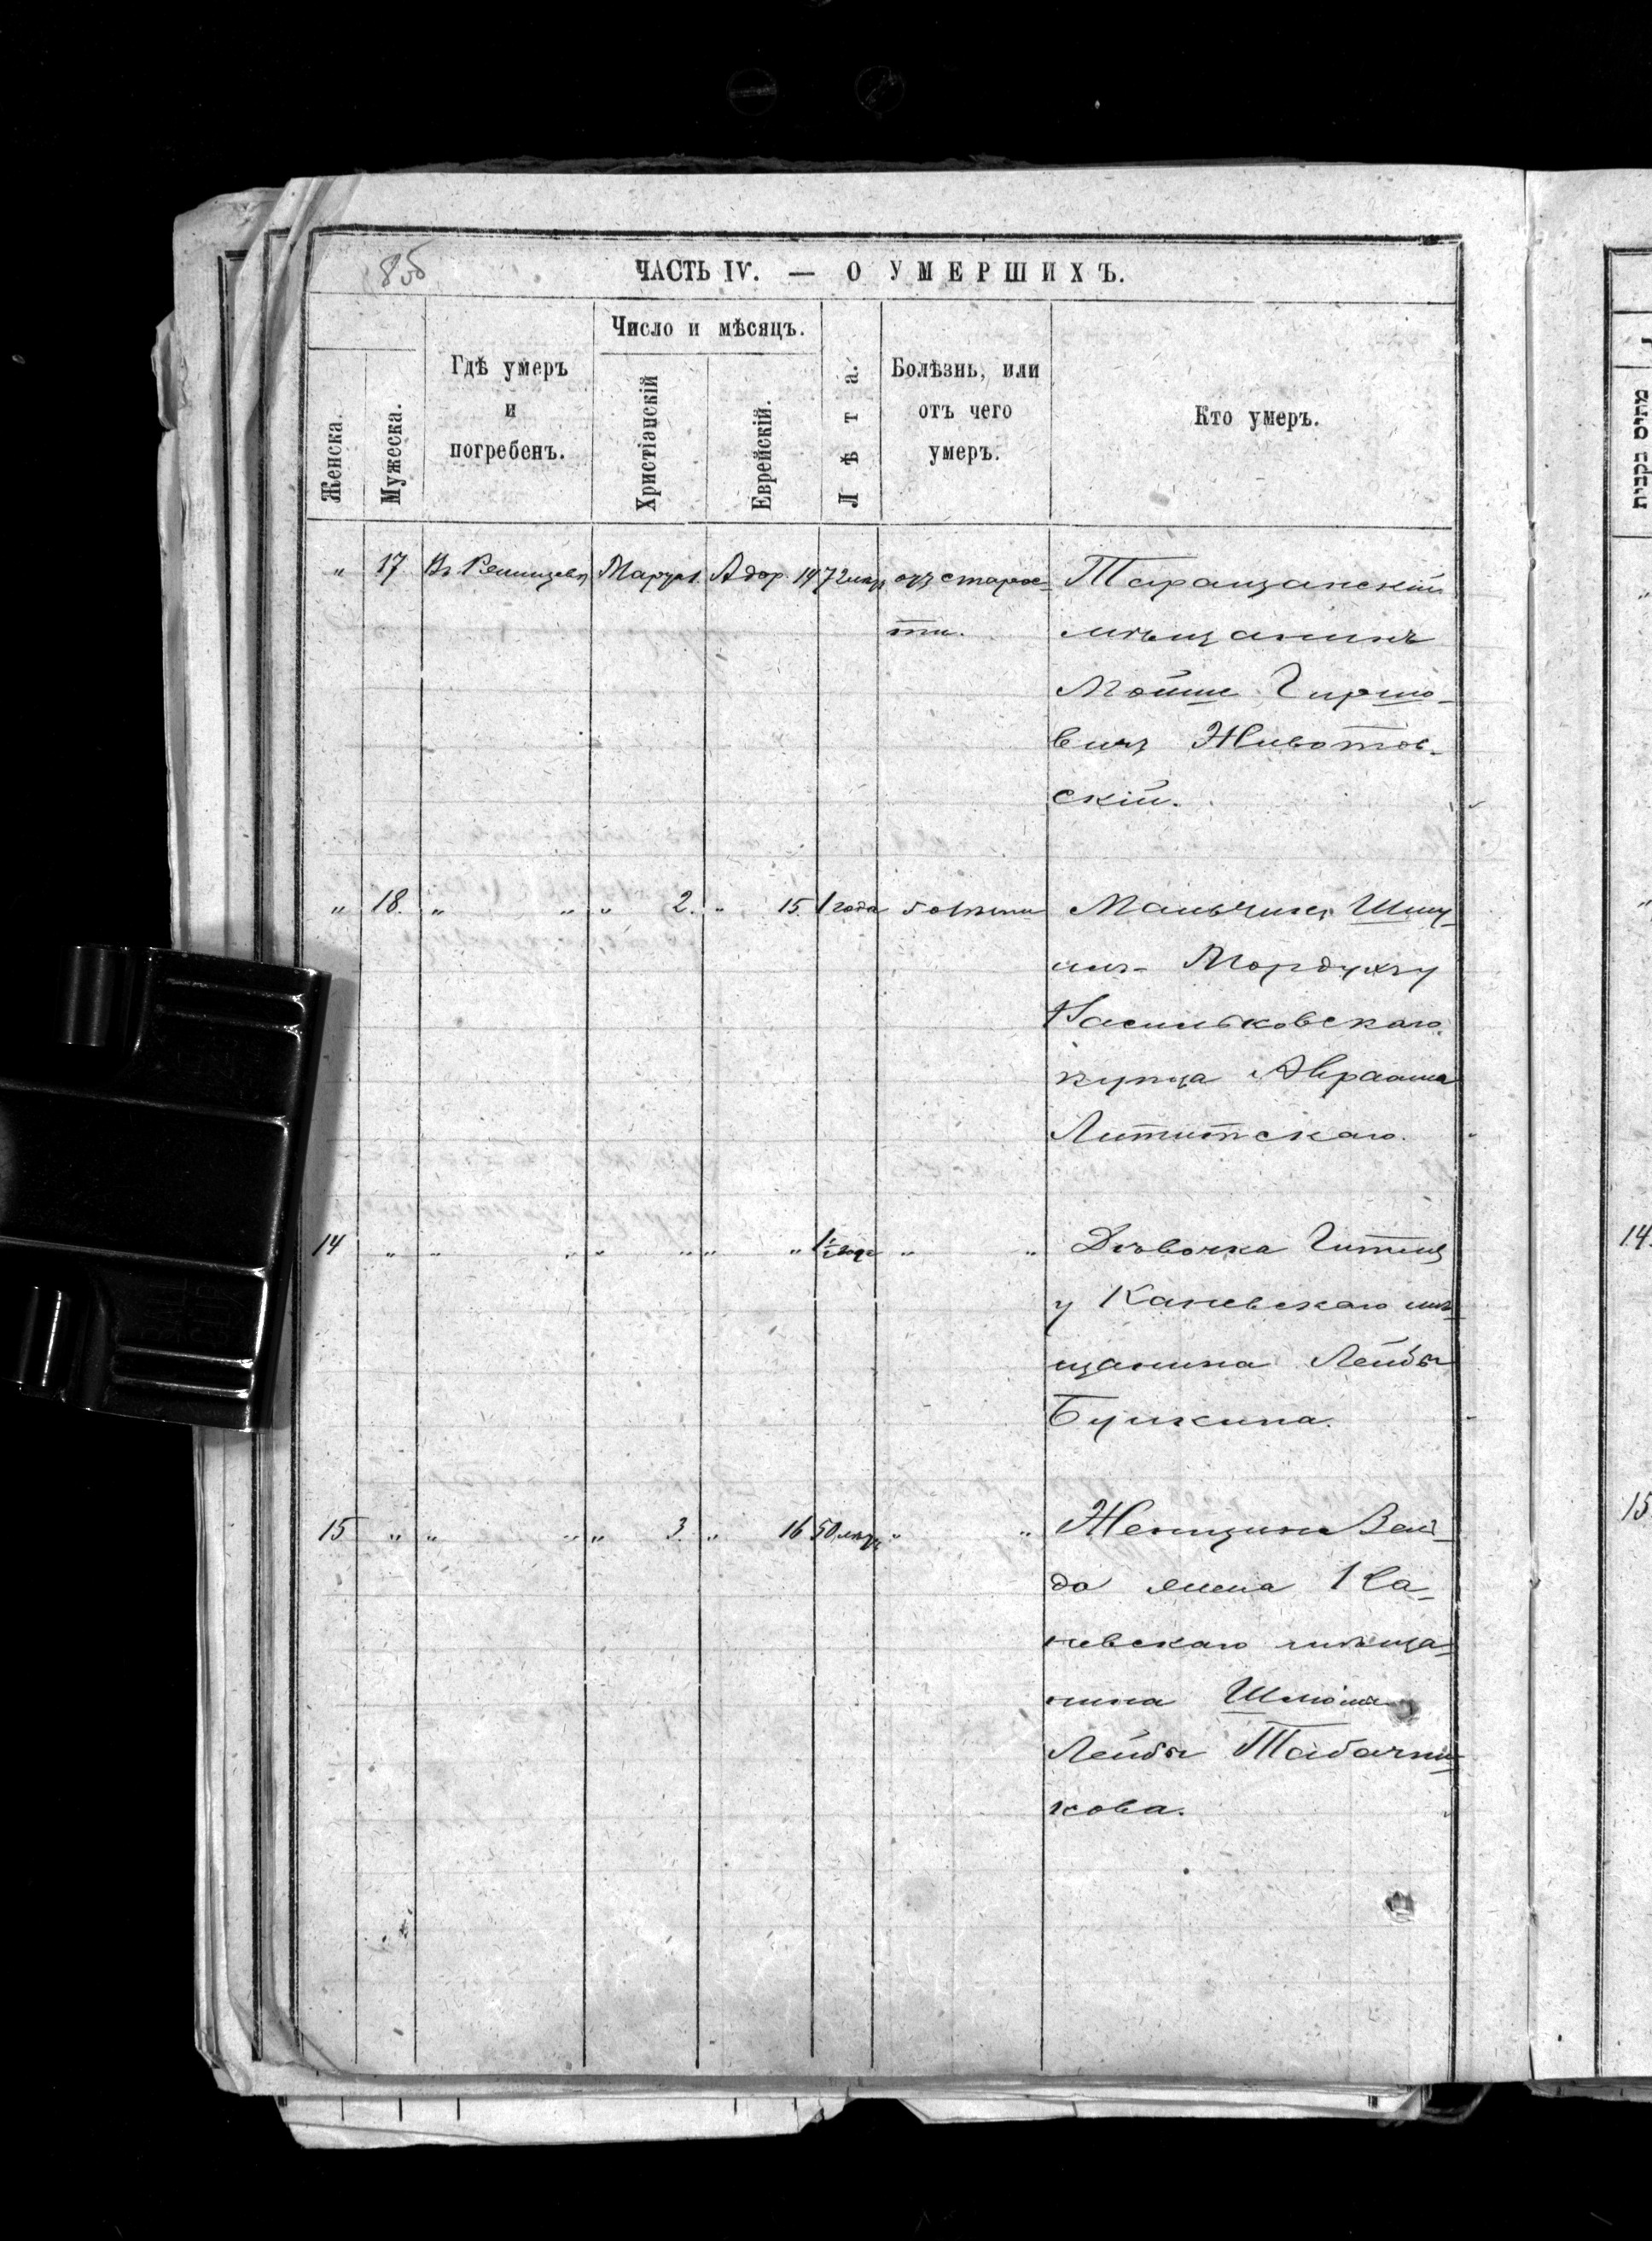 8об
ЧАСТЬ IV. — О УМЕРШИХЪ.
Женска.
Мужеска.
Гдѣ умеръ
и
погребенъ.
Число и мѣсяцъ.
Христіанскій
Еврейскій.
Лѣта.
Болѣзнь, или
отъ чего
умеръ.
Кто умеръ.
" 17 Въ Ржищевѣ Марта 1. Адар. 14 72 лѣтъ отъ старос- Таращанскій
ти. мѣщанинъ
Мойше Гиршо-
вичъ Животов-
скій.
" 18. " " " 2. " 15. 1 года болѣзни Мальчикъ
Мордухъ у
Васильковскаго
купца Авраама
14 " " " " " " " 1/2 года " " Дѣвочка
у Каневскаго мѣ-
щанина Лейбы
15 " " " " 3. " 16 50 лѣтъ " " Женщина Вел-
да жена Ка-
невскаго мѣща-
нина
Лейбы Табачни-
кова.
14.
15